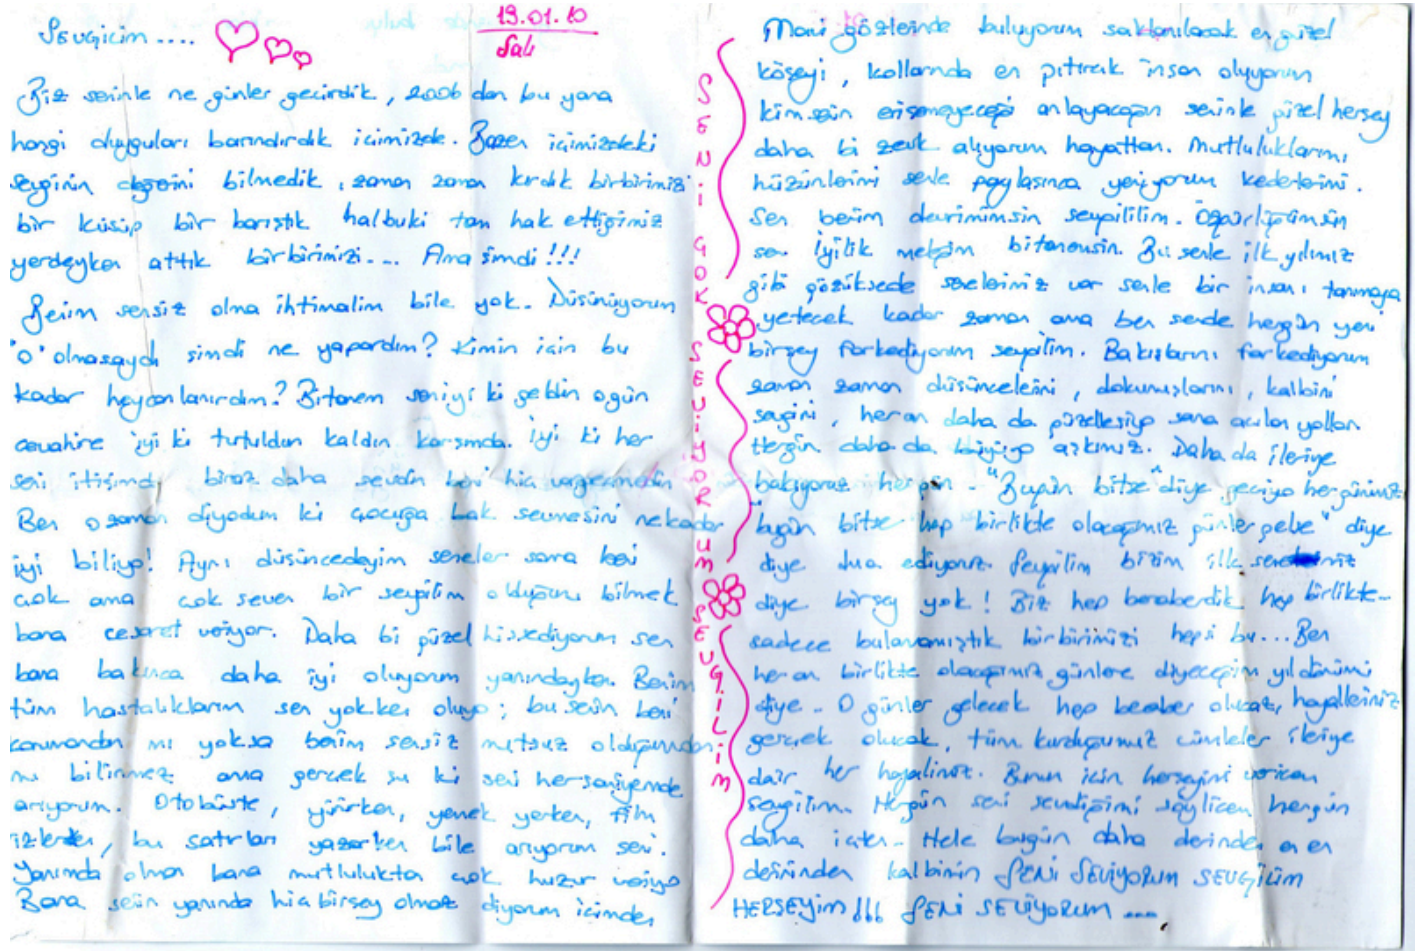 Sevgicim....
19.01.10
Salı
Biz seninle ne günler gecirdik, 2006 dan bu yana
hangi duyguları barındırdık icimizde. Bazen icimizdeki
sevginin değerini bilmedik, zaman zaman kırdık birbirimizi
bir küsüp bir barıştık halbuki tam hak ettiğimiz
yerdeyken attık birbirimizi... Ama şimdi!!!
Benim sensiz olma ihtimalim bile yok. Düsünüyorum
'o' olmasaydı simdi ne yapardım? Kimin icin bu
kadar heycanlanırdım? Bitanem seniyi ki geldin ogün
iyi ki tutuldun kaldın karsımda. İyi ki her
seni itisimde biraz daha sevdin beni hic vazgecmedin
Ben o zaman diyodum ki cocuğa bak sevmesini nekadar
iyi biliyo! Aynı düsüncedeyim seneler sonra beni
cok ama cok seven bir sevgilim olduğunu bilmek
bana cesaret veriyor. Daha bi güzel hissediyorum sen
bana bakınca daha iyi oluyorum yanındayken. Benim
tüm hastalıklarım sen yokken oluyo; bu senin beni
mı yoksa benim sensiz mutsuz olduğumdan
mı bilinmez ama gercek su ki seni hersaniyemde
arıyorum. Otobüste, yürürken, yemek yerken, film
izlerken, bu satırları yazarken bile arıyorum seni.
Yanımda olman bana mutluluktan cok huzur veriyo
Bana senin yanında hicbirsey olmaz diyorum icimden
SENİ ÇOK SEVİYORUM SEVGİLİM
Mavi gözlerinde buluyorum saklanılacak en güzel
köşeyi, kollarında en pıtırcık insan oluyorum
kimsenin erisemeyeceği anlayacağın seninle güzel hersey
daha bi zevk alıyorum hayattan. Mutluluklarımı,
hüzünlerimi senle paylasınca yeniyorum kederlerimi.
Sen benim devrimimsin sevgililim. Özgürlüğümsün
sen iyilik meleğim bitanemsin. Bu senle ilk yılımız
gibi gözüksede senelerimiz var senle bir insanı tanımaya
yetecek kadar zaman ama ben sende hergün yeni
birsey farkediyorum sevgilim. Bakıslarını farkediyorum
zaman zaman düsüncelerini, dokunuslarını, kalbini
sevgini, her an daha da güzellesiyo sana acılan yolları
Hergün daha da büyüyo askımız. Daha da ileriye
bakıyoruz hergün - "Bugün bitse" diye geciyo hergünümüz
"bugün bitse hep birlikte olacağımız günler gelse" diye
diye dua ediyoruz. Sevgilim bizim ilk senemiz
diye birsey yok! Biz hep beraberdik hep birlikte-
sadece bulamamıştık birbirimizi hepsi bu... Ben
her an birlikte olacağımız günlere diyeceğim yıldönümü
diye. O günler gelecek hep beraber olucaz, hayallerimiz
gerçek olucak, tüm kurduğumuz cümleler ileriye
dair her hayalimiz. Bunun icin herseyimi vericem
sevgilim. Hergün seni sevdiğimi söylicem hergün
daha icten. Hele bugün daha derinden en en
derininden kalbimin SENİ SEVİYORUM SEVGİCİM
HERSEYİM!!! SENİ SEVİYORUM ...